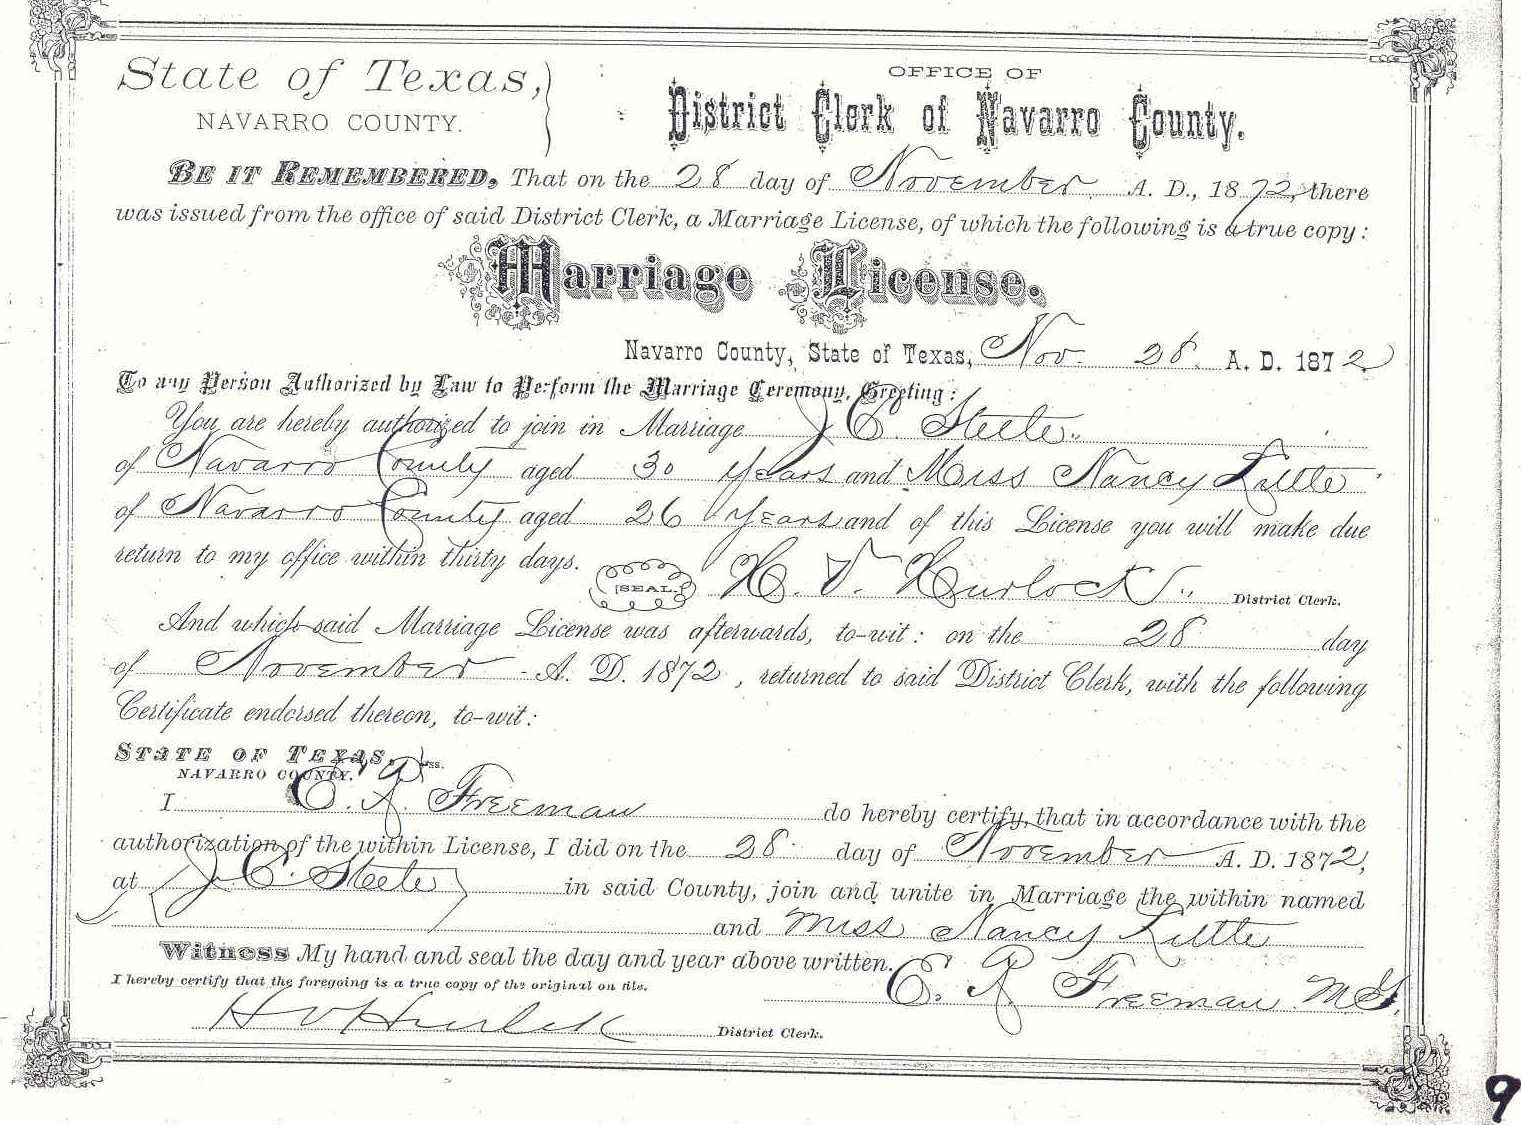 State of Texas,
NAVARRO COUNTY.
OFFICE OF
District Clerk of Navarro County.
BE IT REMEMBERED, That on the 28 day of November A. D., 1872, there
was issued from the office of said District Clerk, a Marriage License, of which the following is a true copy:
Marriage License.
Navarro County, State of Texas, Nov. 28. A. D. 1872
To any Person Authorized by Law to Perform the Marriage Ceremony, Greeting:
You are hereby authorized to join in Marriage J C. Steele
of Navarro County aged 30 Years and Miss Nancy Little
of Navarro County aged 26 Years and of this License you will make due
return to my office within thirty days.
[SEAL.] H. V. Hurlock District Clerk.
And which said Marriage License was afterwards, to-wit: on the 28 day
of November A. D. 1872, returned to said District Clerk, with the following
Certificate endorsed thereon, to-wit:
STATE OF TEXAS, ss.
NAVARRO COUNTY.
I E. R. Freeman do hereby certify, that in accordance with the
authorization of the within License, I did on the 28 day of November A. D. 1872,
at J C. Steele in said County, join and unite in Marriage the within named
and Miss Nancy Little
Witness My hand and seal the day and year above written.
I hereby certify that the foregoing is a true copy of the original on file.
E. R Freeman M G.
H V Hurlock District Clerk.
9